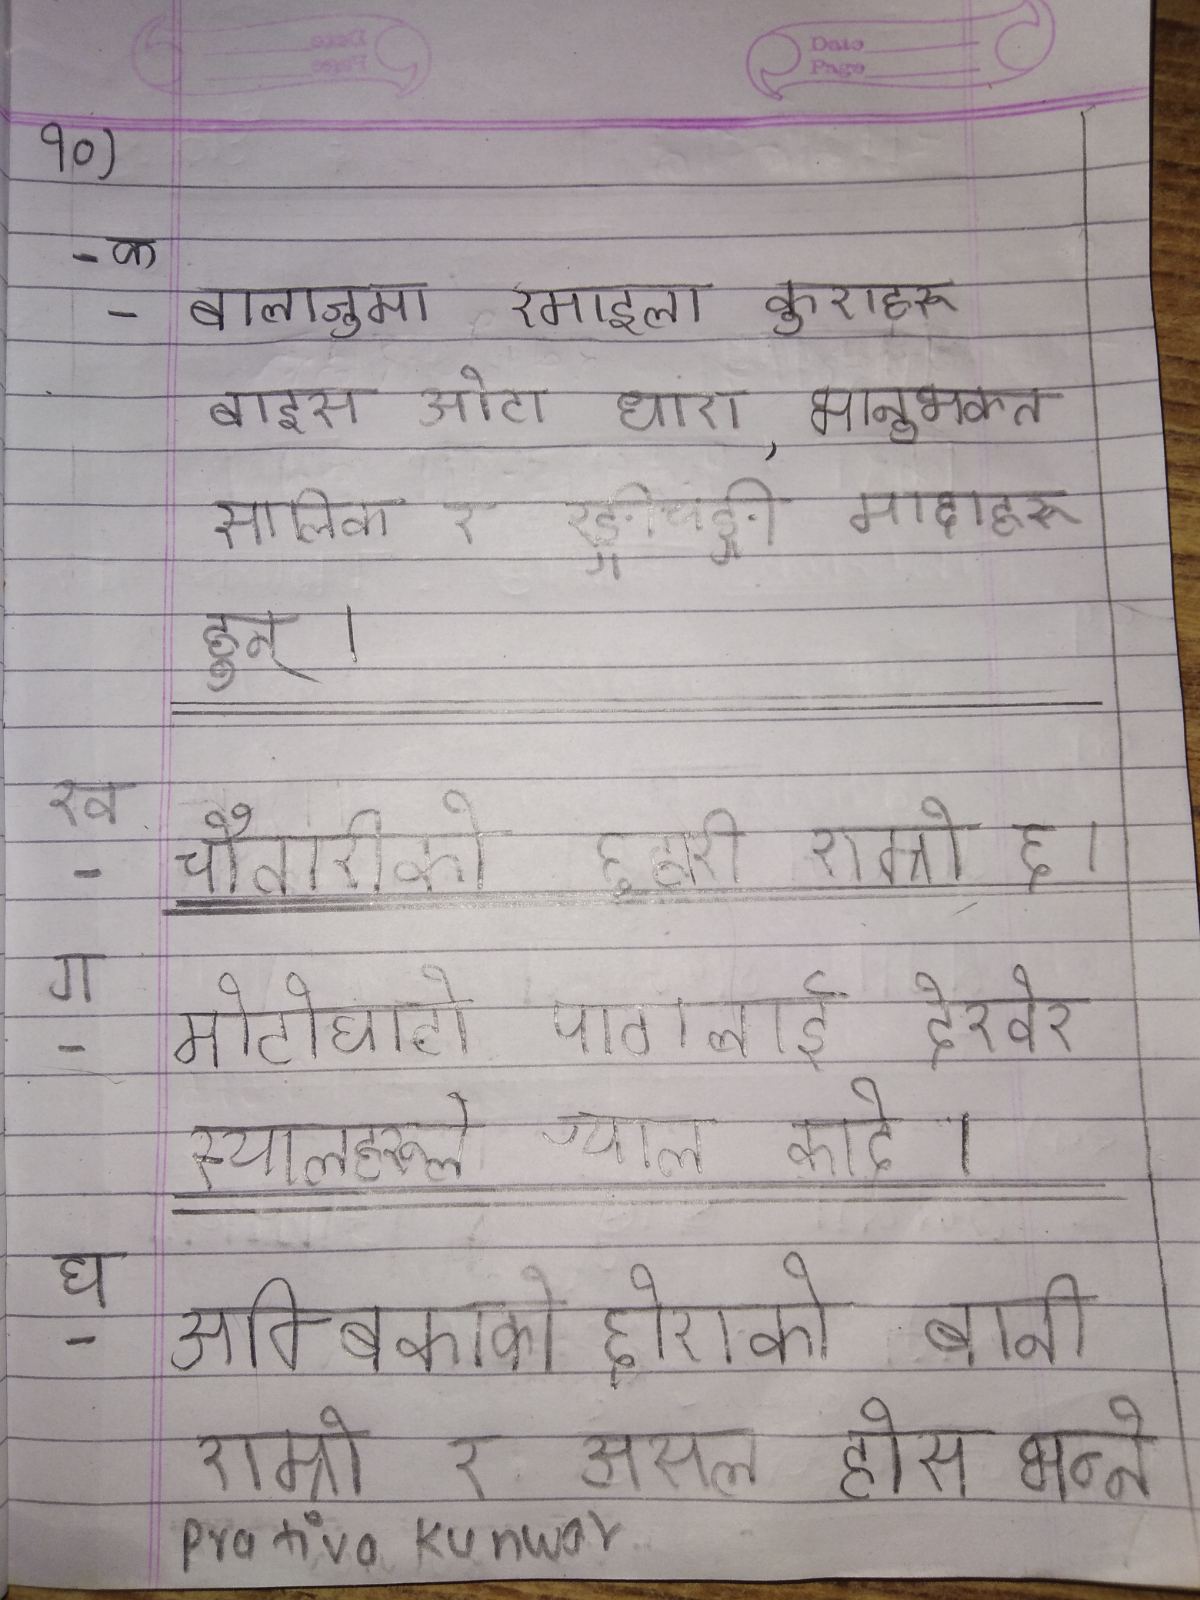 Date
Page
१०)
- क
- बालाजुमा रमाइला कुराहरू
बाइस ओटा धारा, भानुभक्त
सालिक र माछाहरू
हुन् ।
ख
- चौतारीको राम्रो छ ।
ग
- मोटोघाटो पाठालाई देखेर
स्यालहरूले र्‍याल काढे ।
घ
- अम्बिकाको छोराको बानी
राम्रो र असल होस भन्ने
Prativa Kunwar